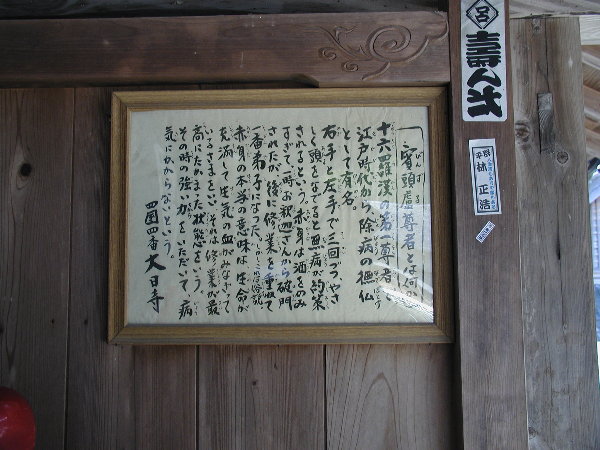 賓頭盧尊者とは何か
びんずる
十六羅漢の第一尊者
江戸時代から除病の撫仏
として有名。
右手と左手で三回づつやさ
しく頭をなでると無病が約策
されるという。赤身は酒をのみ
すぎて、一時お釈迦さんから破門
されたが、後に修業を重ねて
一番弟子になった。
赤身の本来の意味は生命が
充満して生気の血がみなぎって
いるさまといい、それは修業が最
高にたかまった状態をいう。
その時の強い力をいただいて、病
気にかからないという。
四国四番 大日寺
呂
壽ん弐
林正浩